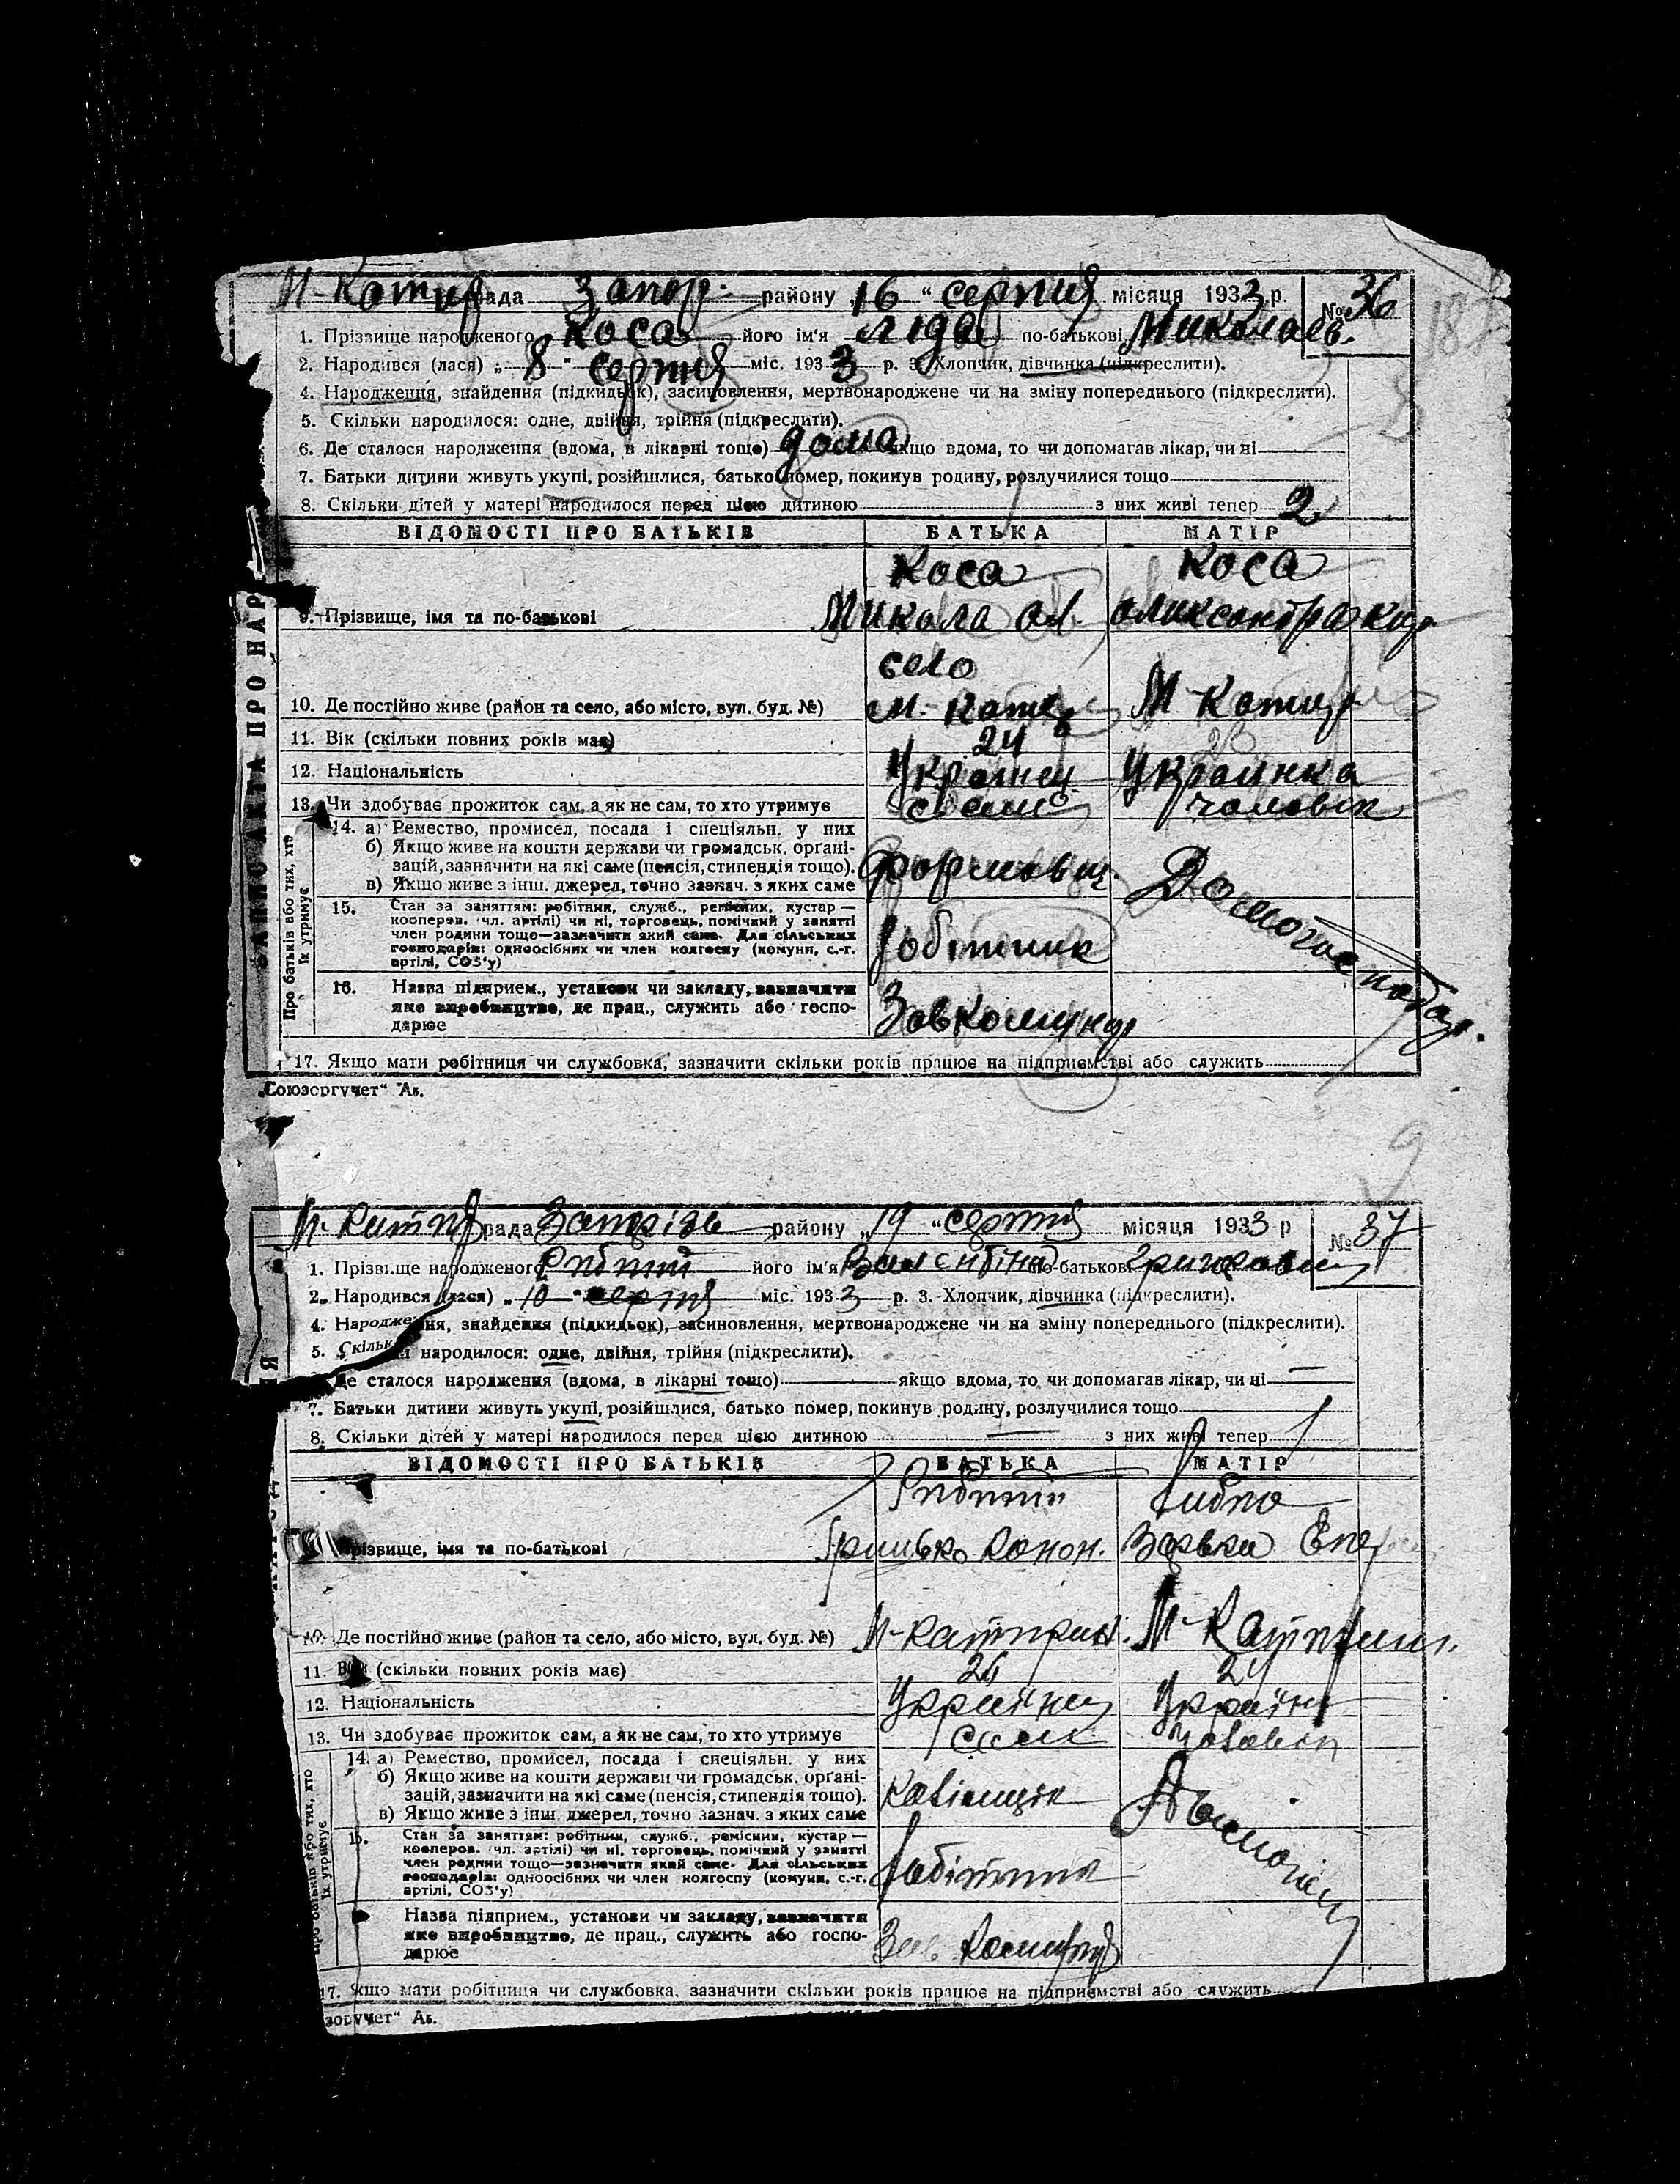 М-Катер рада Запор. району „16 “ серпня місяця 1933 р. № 36
1. Прізвище народженого Коса його ім'я Ліда по-батькові Миколаєв.
2. Народився (лася) „ 8 “ серпня міс. 1933 р. 3. Хлопчик, дівчинка (підкреслити).
4. Народження, знайдення (підкидьок), засиновлення, мертвонароджене чи на зміну попереднього (підкреслити).
5. Скільки народилося: одне, двійня, трійня (підкреслити).
6. Де сталося народження (вдома, в лікарні тощо) дома якщо вдома, то чи допомагав лікар, чи ні
7. Батьки дитини живуть укупі, розійшлися, батько помер, покинув родину, розлучилися тощо
8. Скільки дітей у матері народилося перед цією дитиною з них живі тепер 2
ВІДОМОСТІ ПРО БАТЬКІВ БАТЬКА МАТІР
Коса Коса
9. Прізвище, імя та по-батькові Микола Ол. Олександра
село
10. Де постійно живе (район та село, або місто, вул. буд. №) М-Катер М Катер
11. Вік (скільки повних років має) 24 23
12. Національність Українец Украинка
13. Чи здобуває прожиток сам, а як не сам, то хто утримує само чоловік
14. а) Ремество, промисел, посада і спеціяльн. у них
б) Якщо живе на кошти держави чи громадськ. орґані-
зацій, зазначити на які саме (пенсія, стипендія тощо). формовщ. Домогосподар.
в) Якщо живе з інш. джерел, точно зазнач. з яких саме
15. Стан за заняттям: робітник, служб., ремісник, кустар —
кооперов. (чл. артілі) чи ні, торговець, помічний у занятті
член родини тощо—зазначити який саме. Для сільських
господарів: одноосібних чи член колгоспу (комуни, с.-г.
артілі, СОЗ'у) робітник
16. Назва підприєм., установи чи закладу, зазначити
яке виробництво, де прац., служить або госпо-
дарює Завкомунар
17. Якщо мати робітниця чи службовка, зазначити скільки років працює на підприємстві або служить
„Союзоргучет“ Ак.
ЗАПИС АКТА ПРО НАР
Про батьків або тих, хто
їх утримує
9
М-Катер рада району „19 “ серпня місяця 1933 р № 37
1. Прізвище народженого його ім'я Валентіна по-батькові
2. Народився (лася) „ 10 “ серпня міс. 1933 р. 3. Хлопчик, дівчинка (підкреслити).
4. Народження, знайдення (підкидьок), засиновлення, мертвонароджене чи на зміну попереднього (підкреслити).
5. Скільки народилося: одне, двійня, трійня (підкреслити).
Де сталося народження (вдома, в лікарні тощо) якщо вдома, то чи допомагав лікар, чи ні —
7. Батьки дитини живуть укупі, розійшлися, батько помер, покинув родину, розлучилися тощо
8. Скільки дітей у матері народилося перед цією дитиною — з них живі тепер
ВІДОМОСТІ ПРО БАТЬКІВ БАТЬКА МАТІР
Прізвище, імя та по-батькові Грицько Конон.
10. Де постійно живе (район та село, або місто, вул. буд. №) М-Катерин. М-Катерин.
11. Вік (скільки повних років має) 26 24
12. Національність Українец Україн
13. Чи здобуває прожиток сам, а як не сам, то хто утримує сам чоловік
14. а) Ремество, промисел, посада і спеціяльн. у них
б) Якщо живе на кошти держави чи громадськ. орґані-
зацій, зазначити на які саме (пенсія, стипендія тощо).
в) Якщо живе з інш. джерел, точно зазнач. з яких саме
15. Стан за заняттям: робітник, служб., ремісник, кустар —
кооперов. (чл. артілі) чи ні, торговець, помічний у занятті
член родини тощо—зазначити який саме. Для сільських
господарів: одноосібних чи член колгоспу (комуни, с.-г.
артілі, СОЗ'у) робітник
Назва підприєм., установи чи закладу, зазначити
яке виробництво, де прац., служить або госпо-
дарює Зав Комунар
17. Якщо мати робітниця чи службовка, зазначити скільки років працює на підприємстві або служить
зоргучет“ Ак.